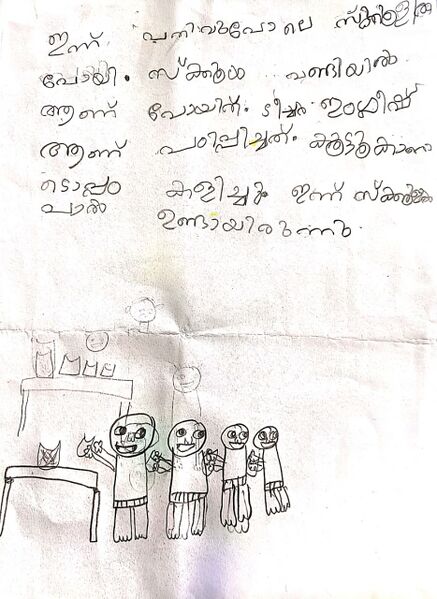 ഇന്ന് പതിവുപോലെ സ്ക്കൂളിൽ
പോയി. സ്ക്കൂൾ വണ്ടിയിൽ
ആണ് പോയിന്. ടീച്ചർ ഇംഗ്ലീഷ്
ആണ് പഠിപ്പിച്ചത്. കൂട്ടുകാരോ
ടൊപ്പം കളിച്ചു ഇന്ന് സ്ക്കൂളിൽ
പാൽ ഉണ്ടായിരുന്നു.